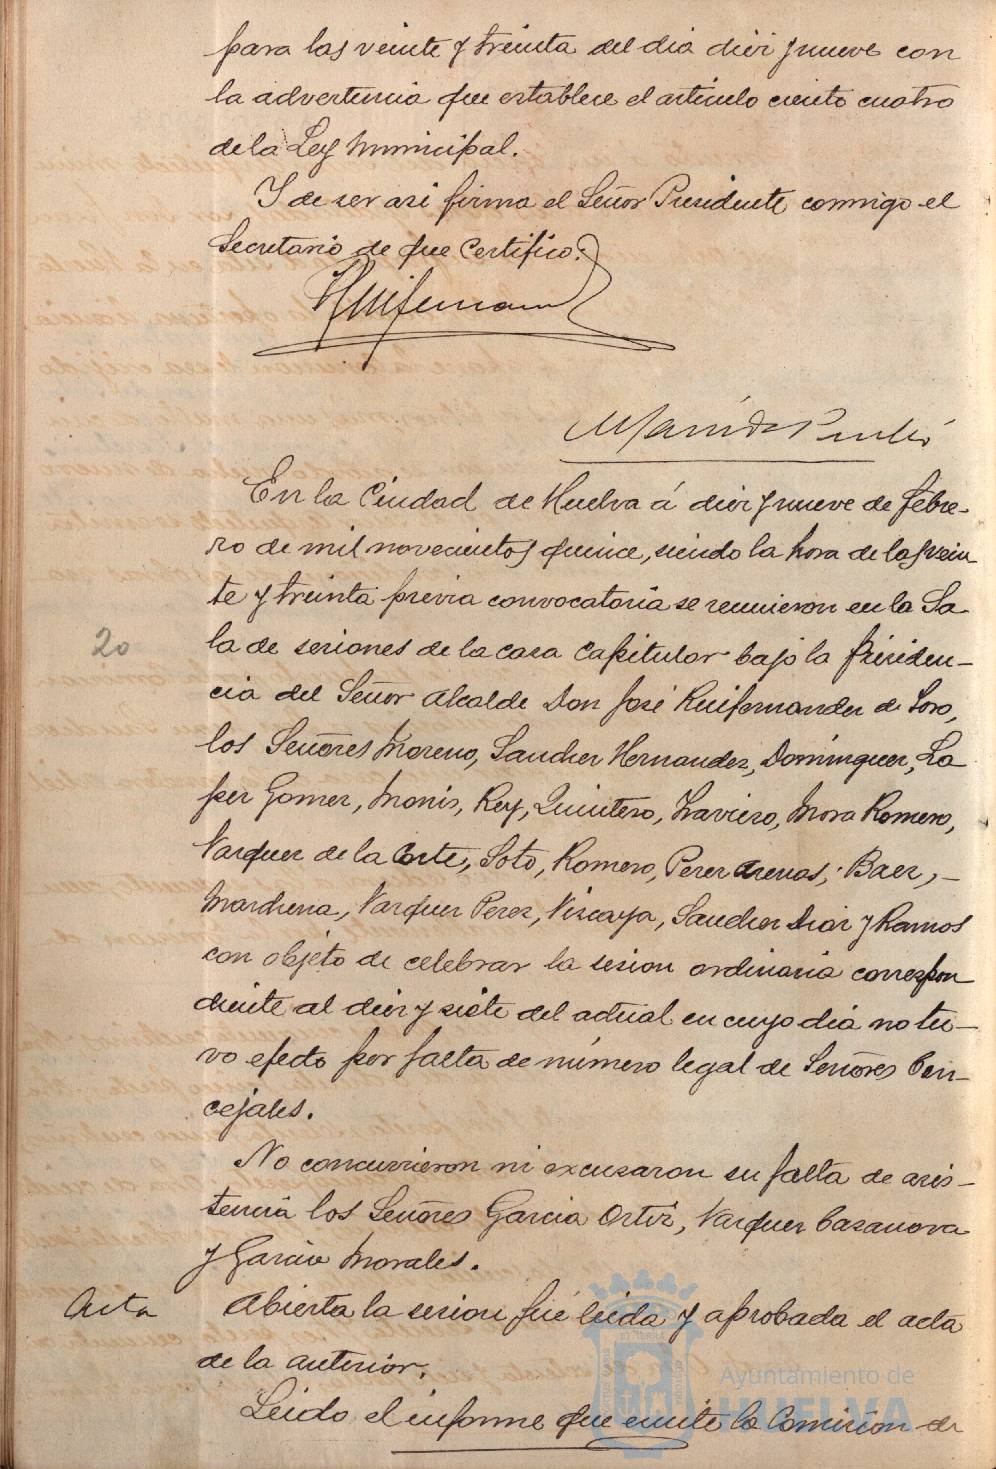 para las veinte y treinta del dia diez y nueve con
la advertencia que establece el articulo ciento cuatro
de la Ley Municipal.
Y de ser asi firma el Señor Presidente conmigo el
Secretario de que Certifico.
Ruifernand
En la Ciudad de Huelva á diez y nueve de febre-
ro de mil novecientos quince, siendo la hora de las vein
te y treinta previa convocatoria se reunieron en la Sa
20
la de sesiones de la casa Capitular bajo la Presiden-
cia del Señor Alcalde Don José Ruifernandez de Soro,
los Señores Moreno, Sanchez Hernandez, Dominguez, Lo
pez Gomez, Monis, Rey, Quintero, Mora Romero,
Vazquez de la Corte, Soto, Romero, Perez Arenas, Baez, -
Marchena, Vazquez Perez, Vizcaya, Sanchez Diaz y Ramos
con objeto de celebrar la sesion ordinaria correspon
diente al diez y siete del actual en cuyo dia no tu-
vo efecto por falta de número legal de Señores Con-
cejales.
No concurrieron ni excusaron su falta de asis-
tencia los Señores Garcia Ortiz, Vazquez Casanova
y Garcia Morales.
Acta
Abierta la sesion fué leida y aprobada el acta
de la anterior.
Leido el informe que emite la Comision de
Ayuntamiento de
HUELVA